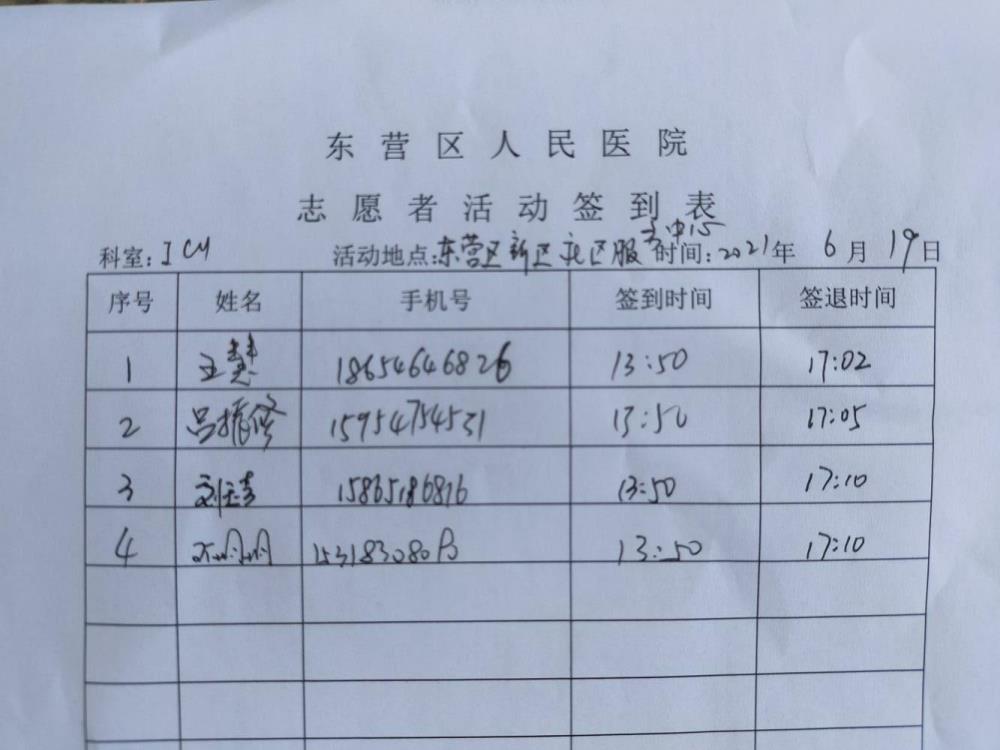 东营区人民医院
志愿者活动签到表
科室：ICU 活动地点：东营区新区社区服务中心 时间：2021年 6月 19日
序号 姓名 手机号 签到时间 签退时间
1 王慧 18654646826 13:50 17:02
2 吕振修 15954754531 13:50 17:05
3 15865186816 13:50 17:10
4 13:50 17:10